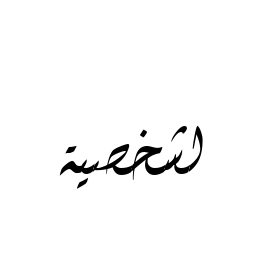 لشخصية